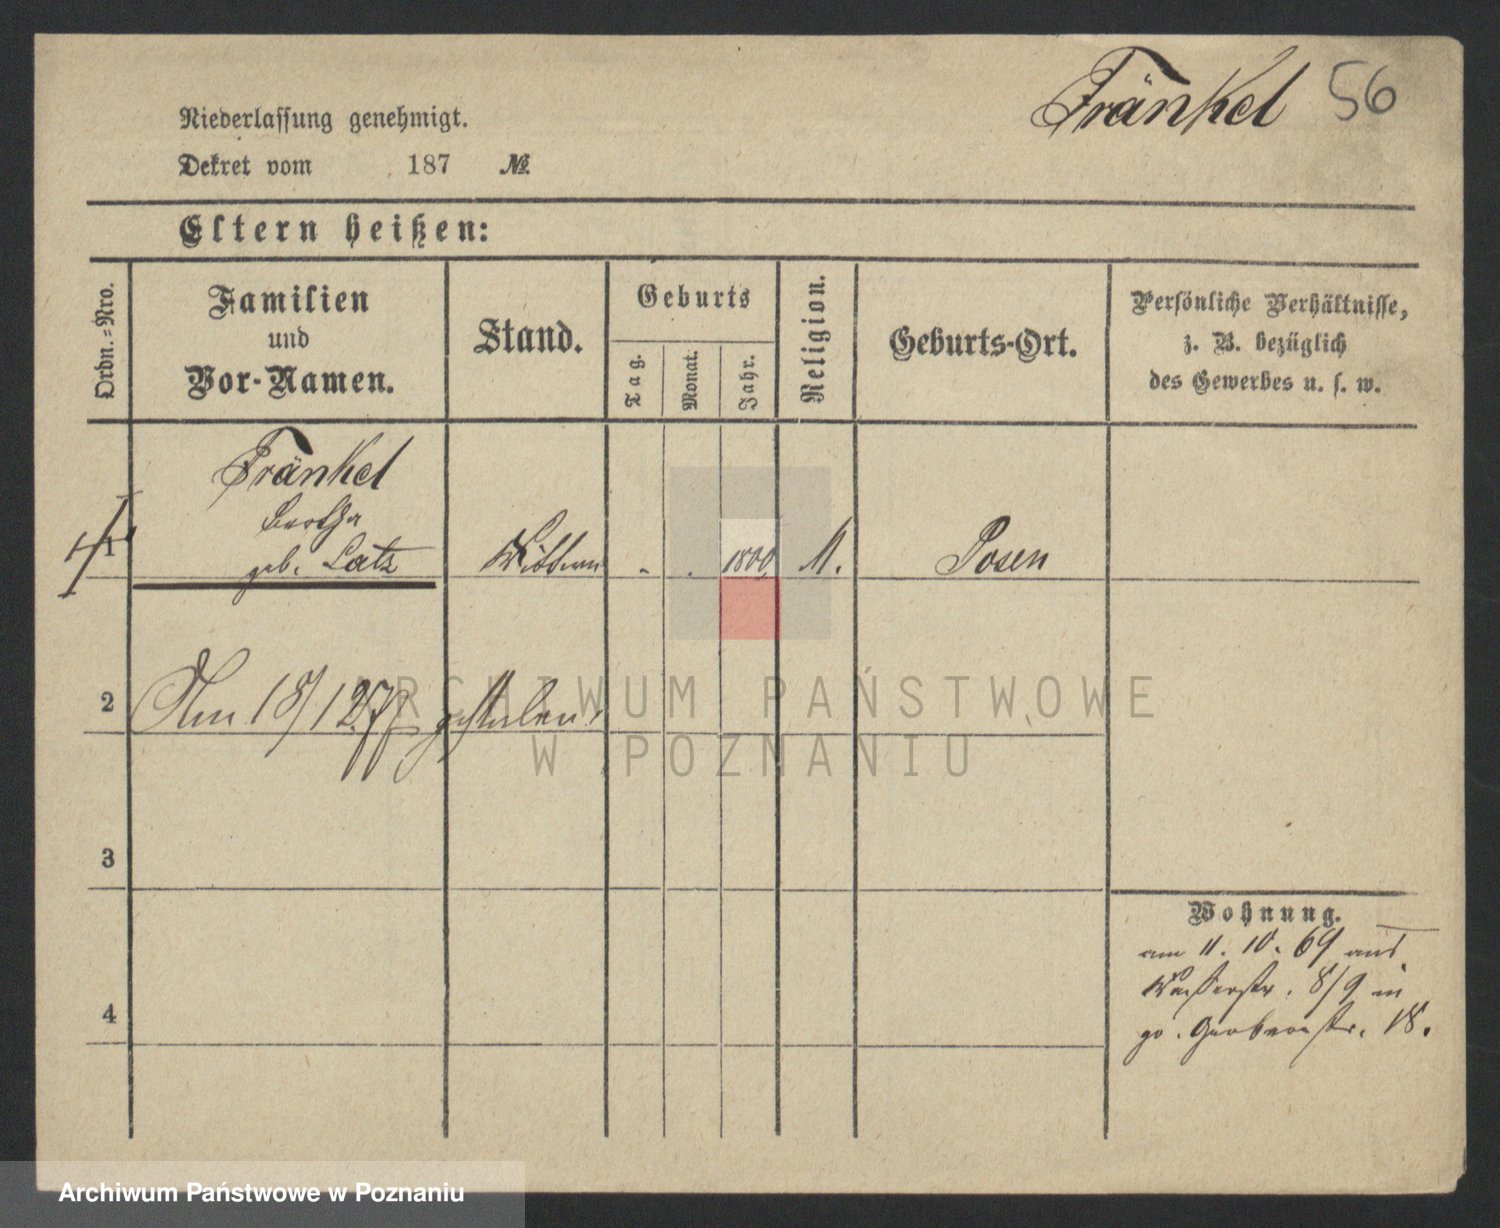 Fränkel 56
Niederlassung genehmigt.
Dekret vom 187 №
Eltern heißen:
Ordn.-Nro.
Familien
und
Vor-Namen.
Stand.
Geburts
Tag.
Monat.
Jahr.
Religion.
Geburts-Ort.
Persönliche Verhältnisse,
z. B. bezüglich
des Gewerbes u. s. w.
Fränkel
Bertha
1 geb. Latz Wittwe - . 1800 M. Posen
2 Am 18/12 77 gestorben.
3
Wohnung.
am 11. 10. 69 aus
Wasserstr. 8/9 in
gr. Gerberstr. 18.
4
ARCHIWUM PAŃSTWOWE
W POZNANIU
Archiwum Państwowe w Poznaniu